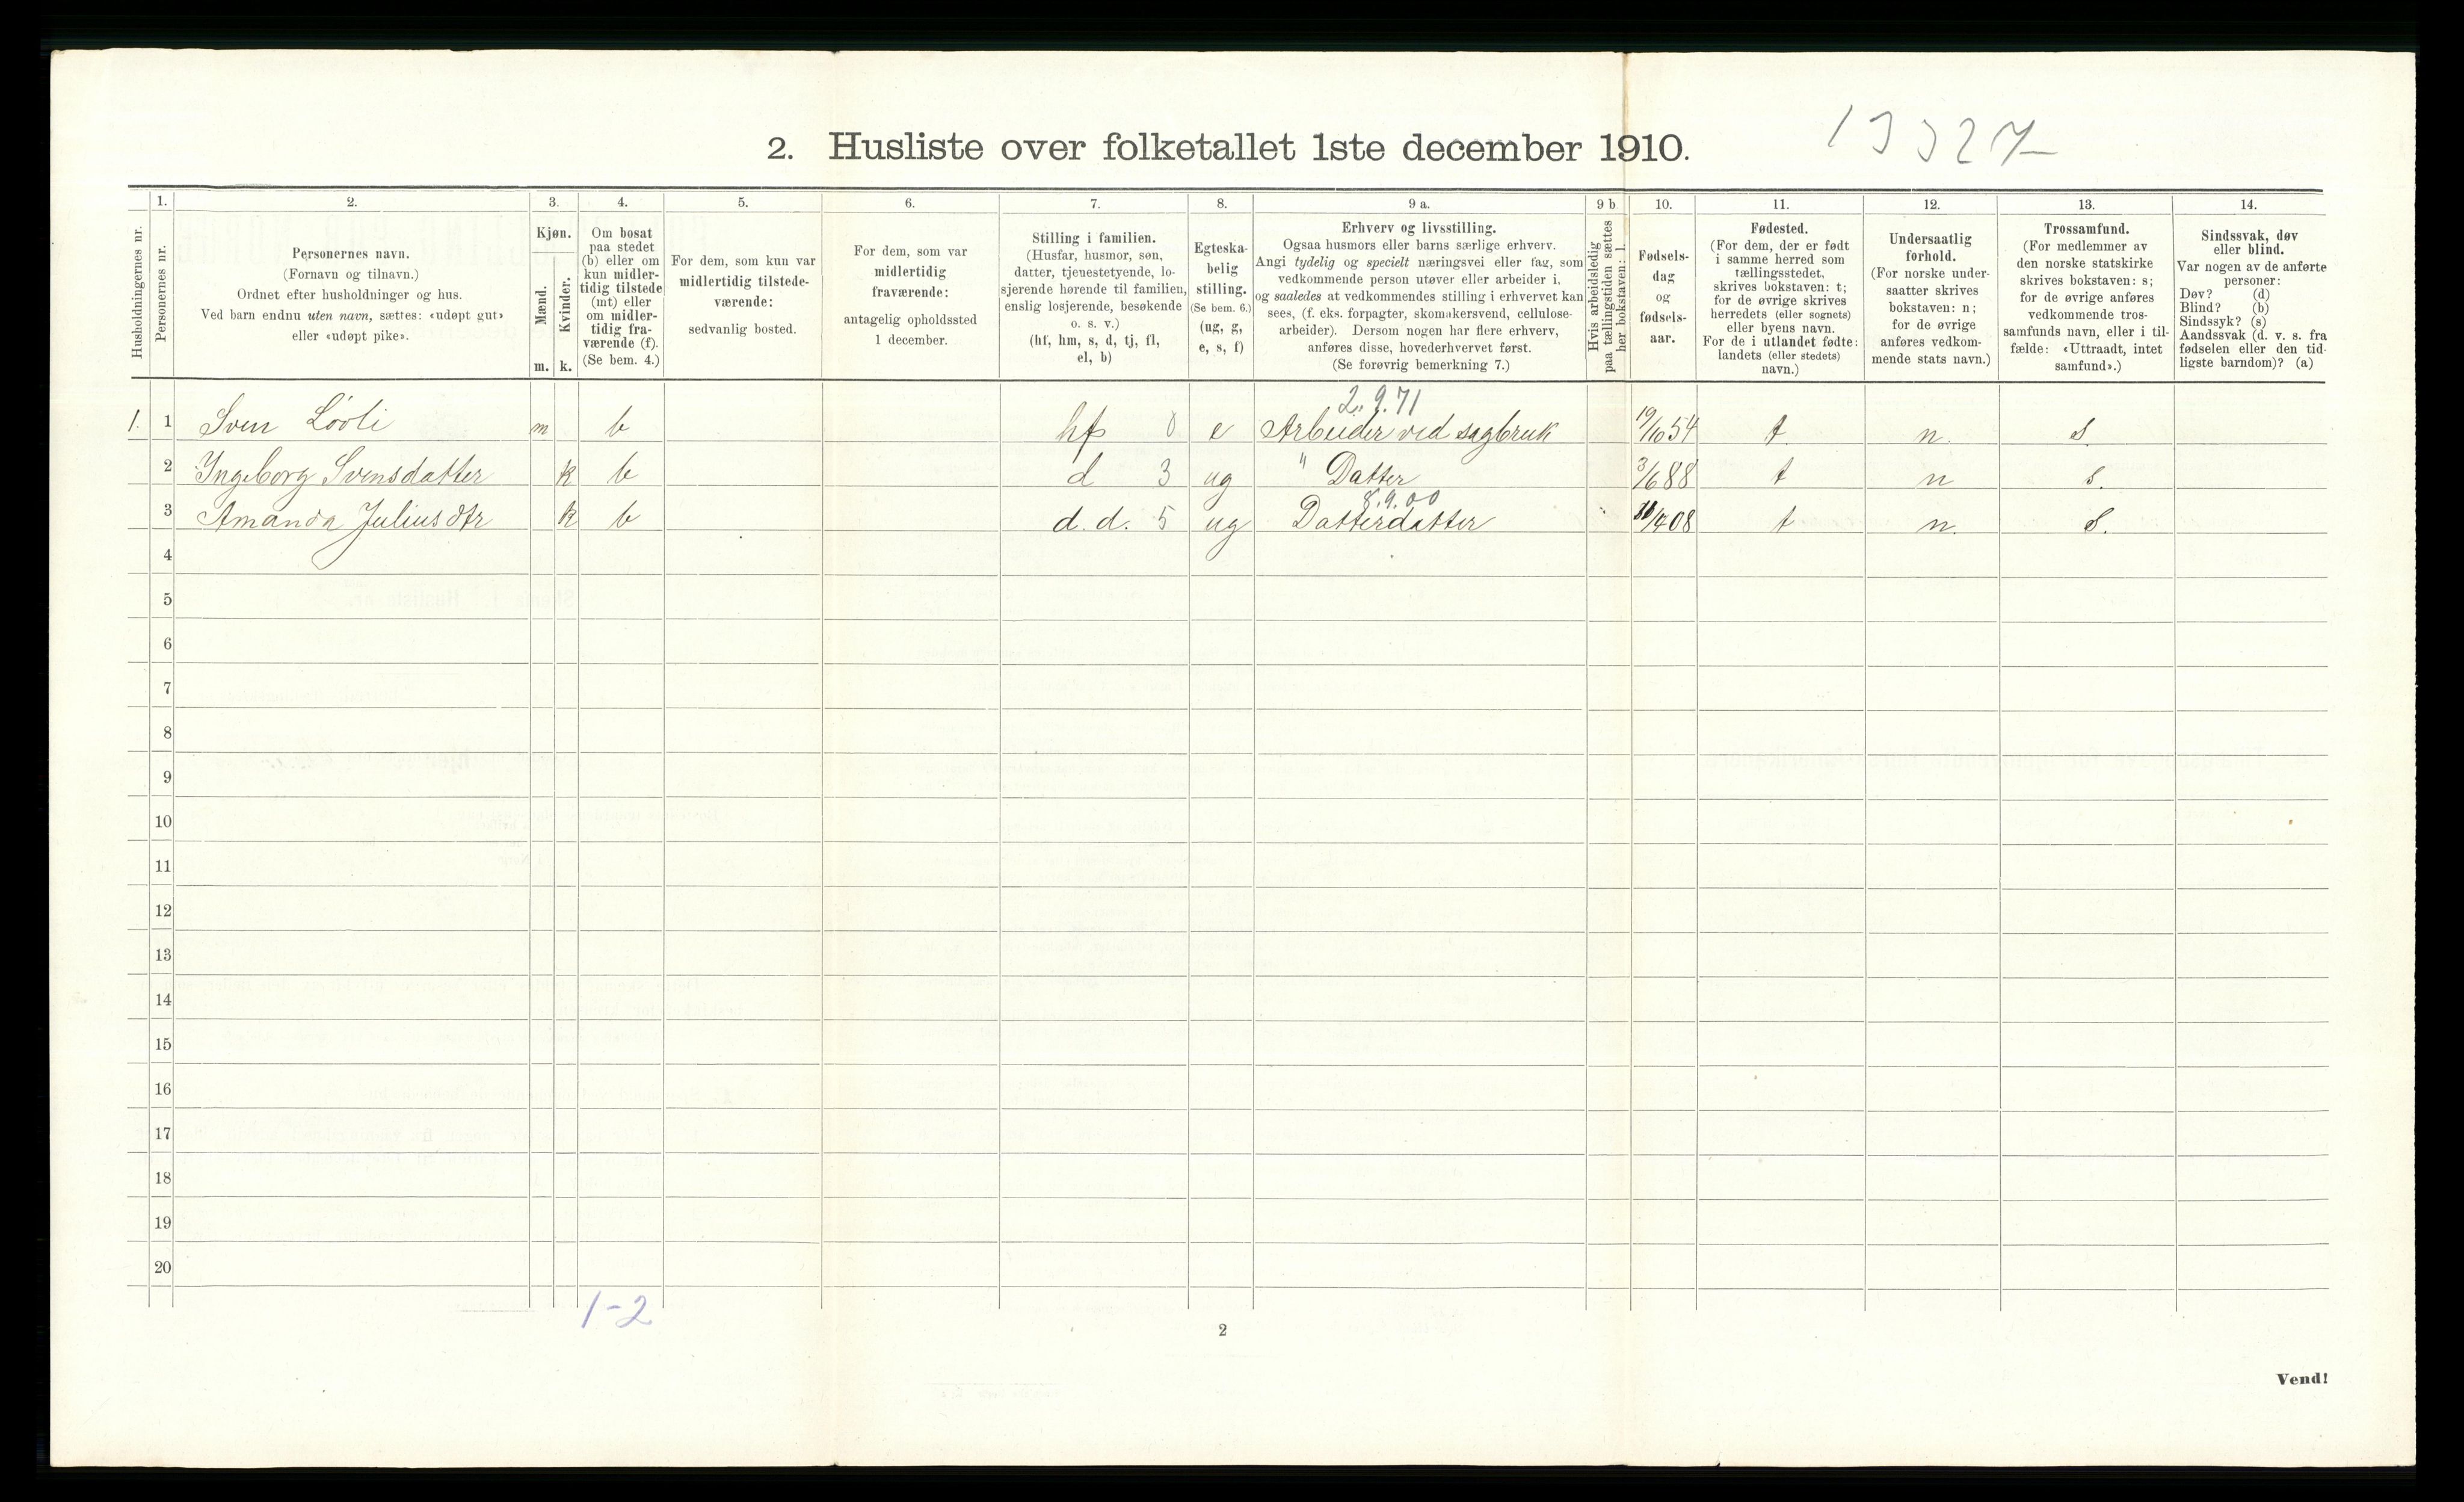 13327
2. Husliste over folketallet 1ste december 1910.
Husholdningernes nr.
1.
Personernes nr.
2.
Personernes navn.
(Fornavn og tilnavn.)
Ordnet efter husholdninger og hus.
Ved barn endnu uten navn, sættes: «udøpt gut»
eller «udøpt pike».
3.
Kjøn.
Mænd.
Kvinder.
m. k.
4.
Om bosat
paa stedet
(b) eller om
kun midler-
tidig tilstede
(mt) eller
om midler-
tidig fra-
værende (f).
(Se bem. 4.)
5.
For dem, som kun var
midlertidig tilstede-
værende:
sedvanlig bosted.
6.
For dem, som var
midlertidig
fraværende:
antagelig opholdssted
1 december.
7.
Stilling i familien.
(Husfar, husmor, søn,
datter, tjenestetyende, lo-
sjerende hørende til familien,
enslig losjerende, besøkende
o. s. v.)
(hf, hm, s, d, tj, fl,
el, b)
8.
Egteska-
belig
stilling.
(Se bem. 6.)
(ug, g,
e, s, f)
9 a.
Erhverv og livsstilling.
Ogsaa husmors eller barns særlige erhverv.
Angi tydelig og specielt næringsvei eller fag, som
vedkommende person utøver eller arbeider i,
og saaledes at vedkommendes stilling i erhvervet kan
sees, (f. eks. forpagter, skomakersvend, cellulose-
arbeider). Dersom nogen har flere erhverv,
anføres disse, hovederhvervet først.
(Se forøvrig bemerkning 7.)
9 b
Hvis arbeidsledig
paa tællingstiden sættes
her bokstaven: l.
10.
Fødsels-
dag
og
fødsels-
aar.
11.
Fødested.
(For dem, der er født
i samme herred som
tællingsstedet,
skrives bokstaven: t;
for de øvrige skrives
herredets (eller sognets)
eller byens navn.
For de i utlandet fødte:
landets (eller stedets)
navn.)
12.
Undersaatlig
forhold.
(For norske under-
saatter skrives
bokstaven: n;
for de øvrige
anføres vedkom-
mende stats navn.)
13.
Trossamfund.
(For medlemmer av
den norske statskirke
skrives bokstaven: s;
for de øvrige anføres
vedkommende tros-
samfunds navn, eller i til-
fælde: «Uttraadt, intet
samfund».)
14.
Sindssvak, døv
eller blind.
Var nogen av de anførte
personer:
Døv? (d)
Blind? (b)
Sindssyk? (s)
Aandssvak (d. v. s. fra
fødselen eller den tid-
ligste barndom)? (a)
2.9.71
1. 1 Sven Lövli m b hf 0 e Arbeider ved sagbruk 19/10 54 t. n. s
2 Ingeborg Svensdatter k b d 3 ug " Datter 3/6 88 t n s.
8.9.00
3 Amanda Juliusdtr k b d.d. 5 ug Datterdatter t n. s.
4
5
6
7
8
9
10
11
12
13
14
15
16
17
18
19
20
1-2
2
Vend!